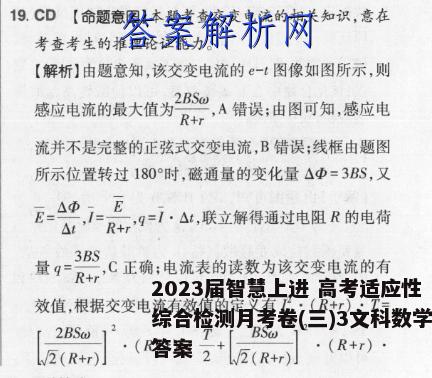 19. CD 【命题意图】本题考查交变电流的相关知识,意在
考查考生的推理论证能力。
答案解析网
【解析】由题意知,该交变电流的 e-t 图像如图所示,则
感应电流的最大值为 2BSω/R+r ,A 错误;由图可知,感应电
流并不是完整的正弦式交变电流,B 错误;线框由题图
所示位置转过 180°时,磁通量的变化量 ΔΦ=3BS,又
E̅=ΔΦ/Δt,I̅=E̅/R+r,q=I̅·Δt,联立解得通过电阻 R 的电荷
量 q=3BS/R+r,C 正确;电流表的读数为该交变电流的有
效值,根据交变电流有效值的定义有 I²·(R+r)·T=
[2BSω/√2(R+r)]²·(R T/2+[BSω/√2(R+r)]²·(R+r)·
2023届智慧上进 高考适应性
综合检测月考卷(三)3文科数学
答案